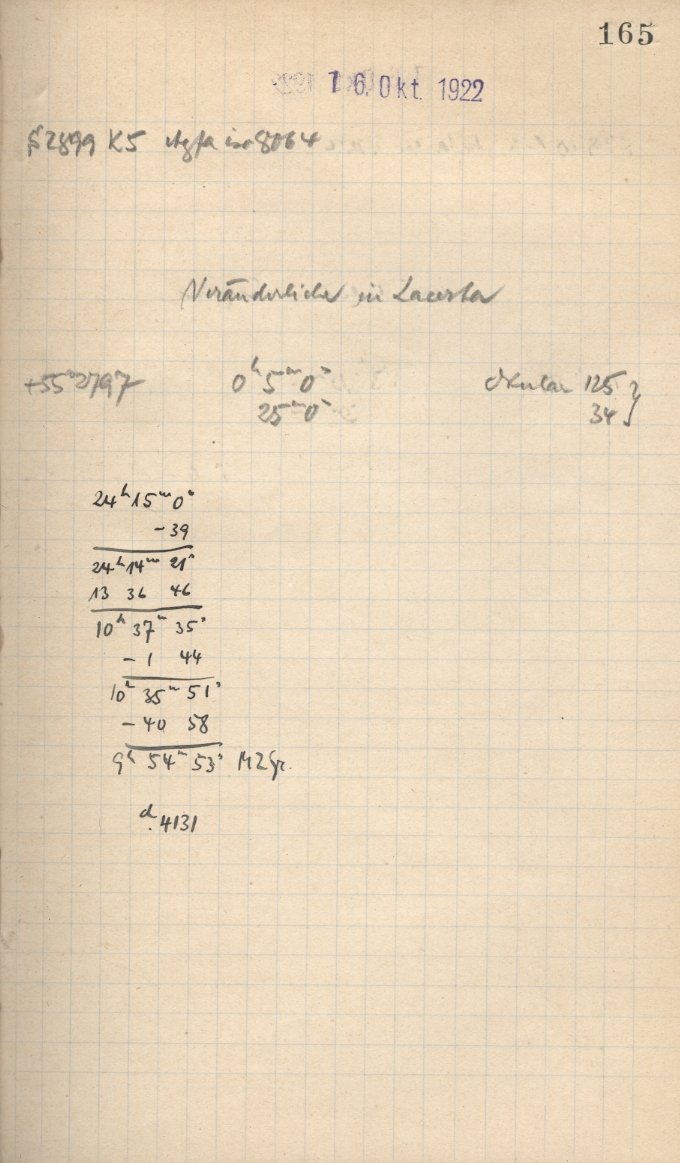 165
16. Okt. 1922
2899 K5 Agfa iso 8064
Veränderliche in Lacerta
+55°2797 0ʰ5ᵐ0ˢ Okular 125
25ᵐ0ˢ 34
24ʰ15ᵐ0ˢ
-39
24ʰ14ᵐ 21ˢ
13 36 46
10ʰ 37ᵐ 35ˢ
- 1 44
10ʰ 35ᵐ 51ˢ
- 40 58
9ʰ 54ᵐ 53ˢ MZGr.
ᵈ.4131